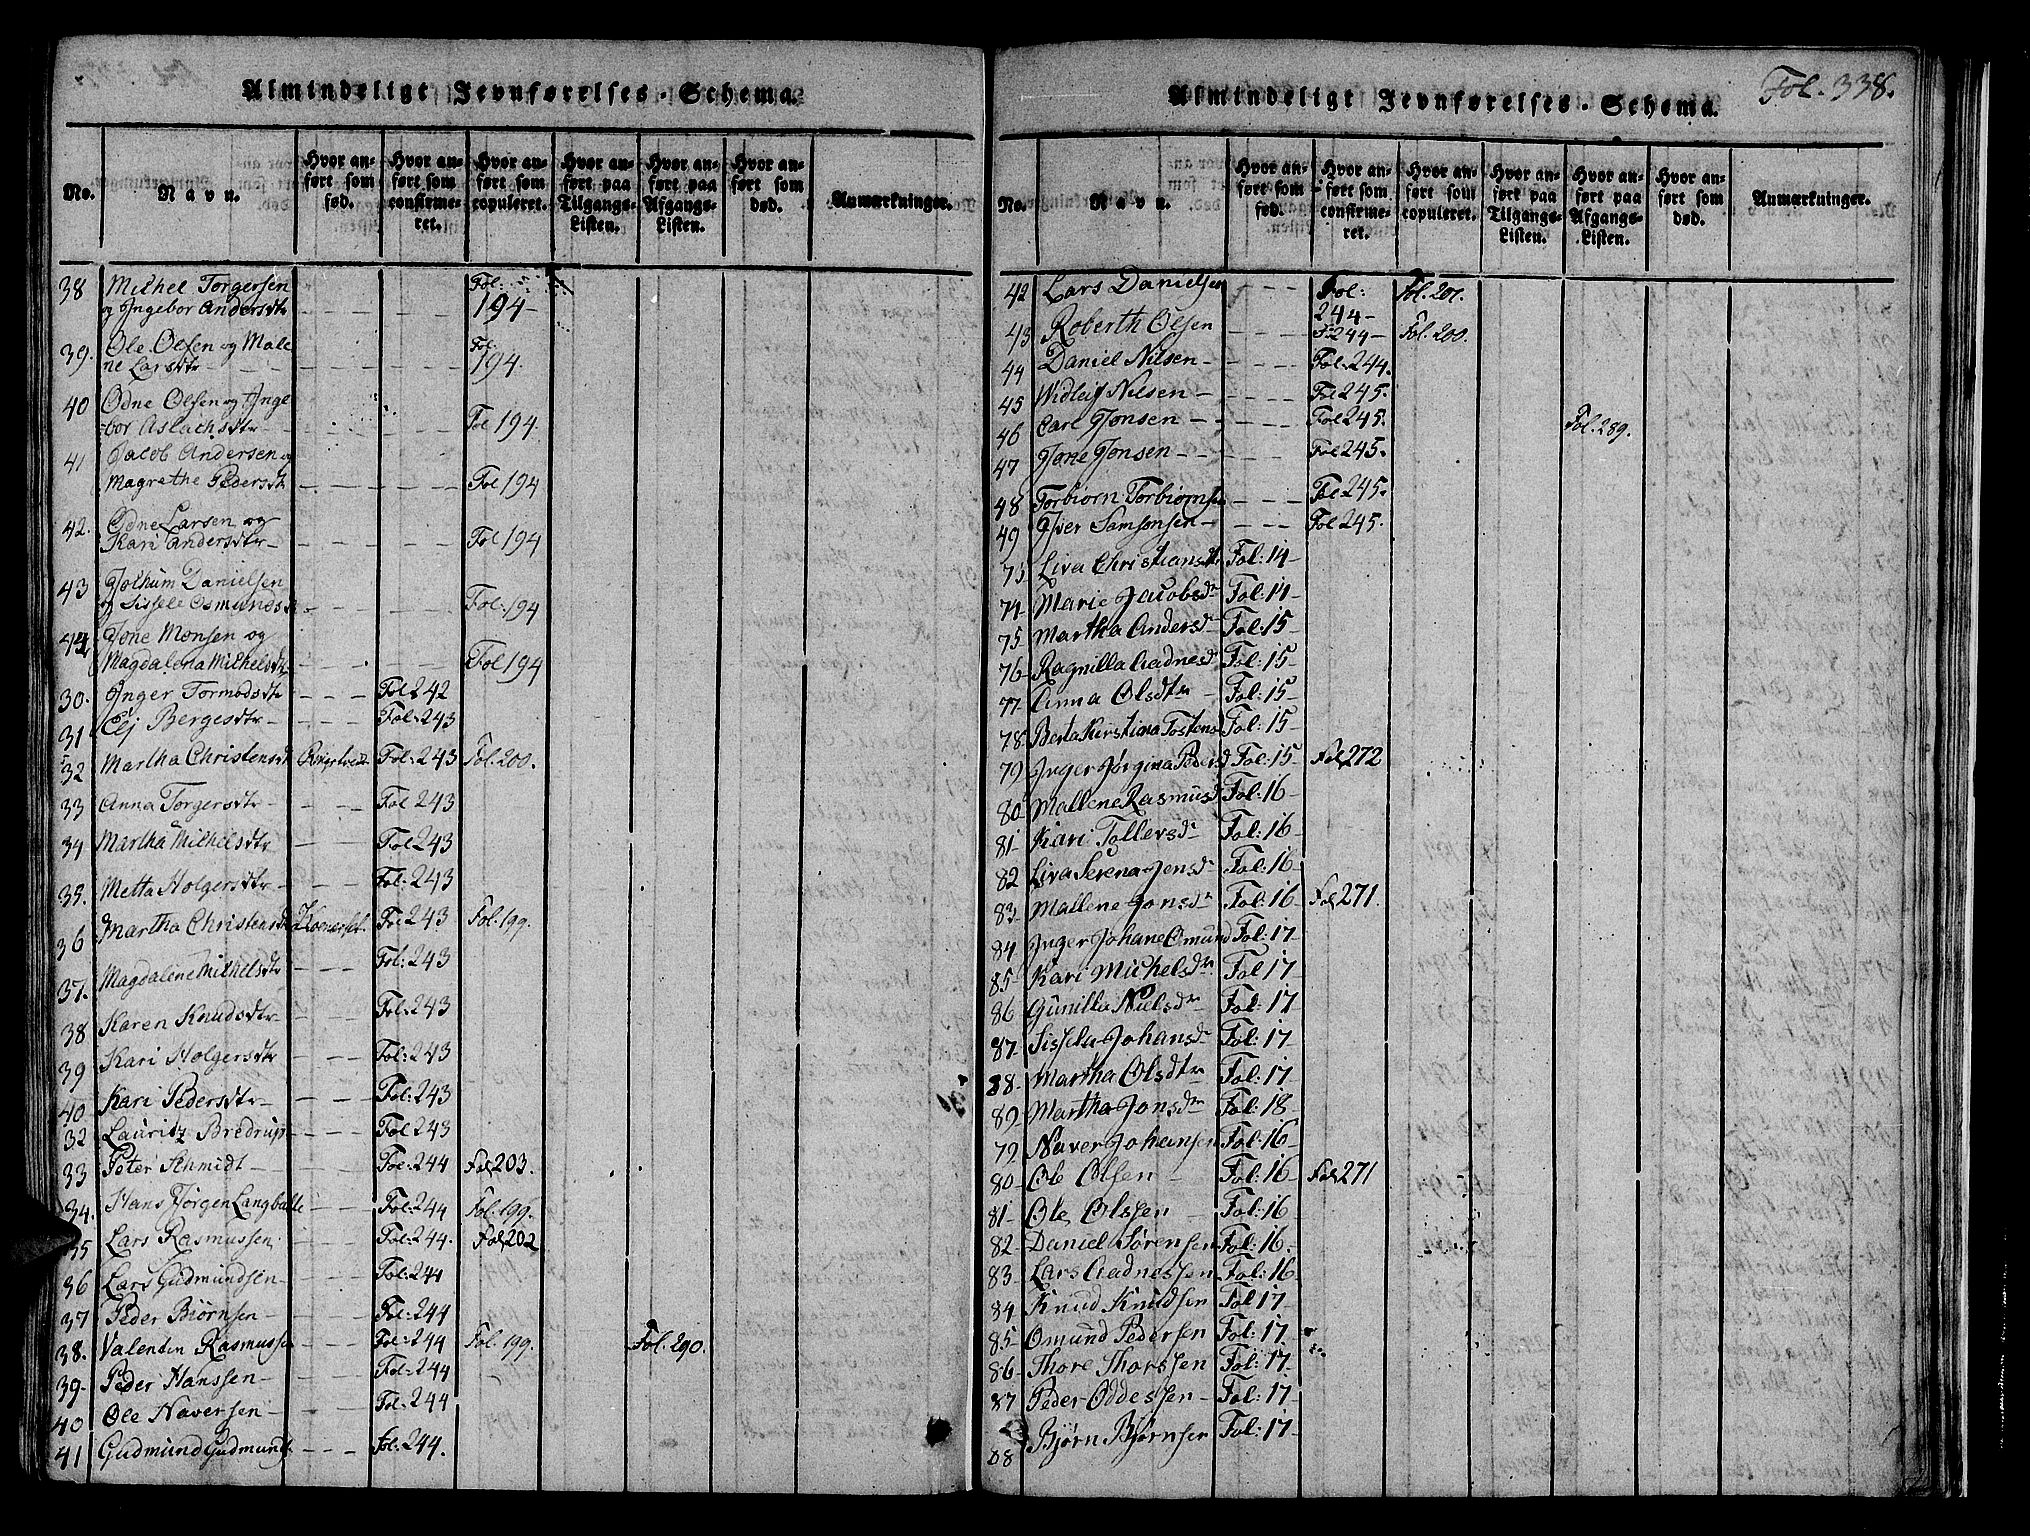 Almindeligt Jevnførelses-Schema.
No. Navn. Hvor anført som fød. Hvor anført som confirmeret. Hvor anført som copuleret. Hvor anført paa Tilgangs-Listen. Hvor anført paa Afgangs-Listen. Hvor anført som død. Anmærkninger.
38 Michel Torgersen
og Ingebor Andersdtr Fol: 194-
39. Ole Olsen og Male
ne Larsdtr Fol. 194.
40 Odne Olsen og Inge
bor Aslachsdtr Fol 194
41 Jacob Andersen og
Magrethe Pedersdtr Fol 194
42. Odne Larsen og
Kari Andersdtr Fol 194
43 Jochum Danielsen
og Sissele Osmundsdtr Fol. 194
44 Jone Monsen og
Magdalena Michelsdtr Fol 194
30. Inger Tormodsdtr Fol 242
31 Elj Bergesdtr Fol. 243
32 Martha Christensdt Fol: 243 Fol. 200.
33 Anna Torgersdtr Fol 243
34 Martha Michelsdtr Fol 243
35. Metta Holgersdtr Fol: 243
36 Martha Christensdtr Fol: 243 Fol. 199.
37. Magdalene Michelsdtr Fol: 243
38 Karen Knudsdtr Fol: 243
39 Kari Holgersdtr Fol: 243
40 Kari Pedersdtr Fol: 243
32 Lauritz Bredrup Fol 243
33 Peter Schmidt Fol: 244 Fol 203.
34. Hans Jørgen Langballe Fol: 244 Fol. 199.
35 Lars Rasmussen Fol: 244. Fol 202
36 Lars Gudmundsen Fol: 244
37 Peder Biørnsen Fol: 244
38. Valentin Rasmussen Fol: 244 Fol. 199. Fol. 290.
39. Peder Hanssen Fol: 244
40 Ole Naversen Fol: 244
41 Gudmund Gudmunds Fol: 244.
Almindeligt Jevnførelses-Schema. Fol. 338.
No. Navn. Hvor anført som fød. Hvor anført som confirmeret. Hvor anført som copuleret. Hvor anført paa Tilgangs-Listen. Hvor anført paa Afgangs-Listen. Hvor anført som død. Anmærkninger.
42 Lars Danielsen Fol: 244- Fol. 201.
43 Roberth Olsen F: 244- Fol. 200.
44 Daniel Nilsen Fol. 244.
45 Widleif Nilsen Fol 245.
46 Carl Jonsen Fol 245. Fol. 289.
47 Jone Jonsen Fol 245.
48 Torbiorn Torbiornsen Fol 245.
49 Iver Samsonsen Fol 245.
73 Liva Christiansdtr Fol: 14-
74 Marie Jacobsdr Fol: 14-
75 Martha Andersdr Fol: 15-
76 Ragnilla Aadnesdr Fol: 15-
77 Anna Olsdtr Fol: 15-
78 Berta Kirstina Tostensd Fol: 15-
79 Inger Jørgina Pedersd Fol: 15- Fol 272
80 Mallene Rasmusd Fol: 16-
81 Kari Tollersdr Fol: 16-
82 Liva Serena Jensdr Fol: 16-
83 Mallene Jonsdr Fol: 16 Fol 271.
84 Inger Johane Omund Fol: 17-
85 Kari Michelsdr Fol 17-
86 Gunilla Nielsdr Fol: 17
87 Sissela Johansdr Fol: 17
88. Martha Olsdtr Fol: 17
89 Martha Jonsdr Fol: 18
79 Naver Johansen Fol: 16-
80 Ole Olsen Fol: 16 Fol 271
81 Ole Olssen Fol: 16
82 Daniel Sørensen Fol: 16.
83 Lars Aadnessen Fol: 16-
84 Knud Knudsen Fol 17-
85 Omund Pedersen Fol: 17.
86 Thore Thorssen Fol: 17-
87 Peder Oddessen Fol: 17-
88 Bjørn Bjørnsen Fol: 17-